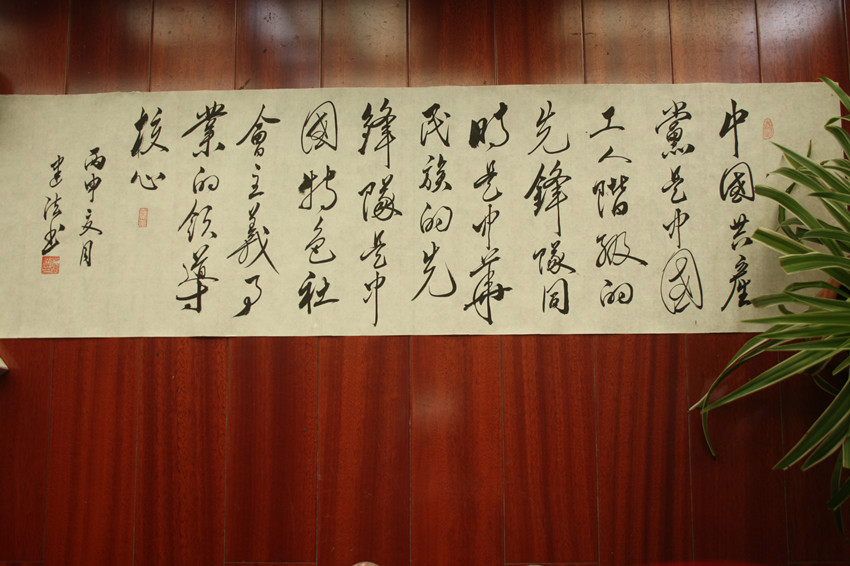 中國共產
黨是中國
工人階級的
先鋒隊同
時是中華
民族的先
鋒隊是中
國特色社
會主義事
業的領導
核心
丙申文月
建法書